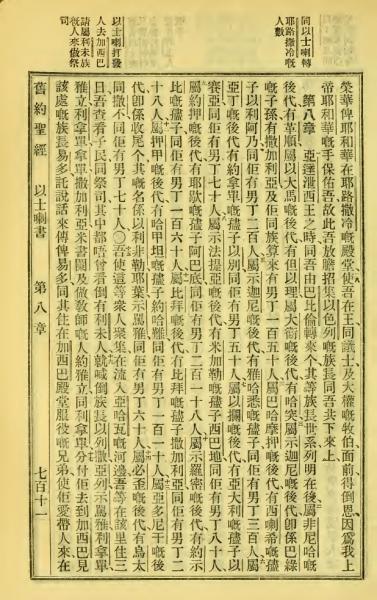 同以士喇轉
耶路撒冷嘅
人數
以士喇打發
人去加西巴
請屬利未族
嘅人來做祭
司
榮華俾耶和華在耶路撒冷嘅殿堂、使吾在王同謀士及大權嘅牧伯面前得倒恩、因爲我上
帝耶和華嘅手保佑吾、故此吾放膽招集以色列嘅族長同吾共下來上、
第八章 亞達泄西王之時同吾由巴比倫轉來个其等族長世系列明在後、屬非尼哈嘅
後代有革順、屬以大馬嘅後代有但以理、屬大衛嘅後代有哈突、屬示迦尼嘅後代卽係巴錄
嘅子孫有撒加利亞及佢同族算來有男丁一百五十人、屬巴哈摩押嘅後代有西喇希嘅孻
子以利阿乃同佢有男丁二百人、屬示迦尼嘅後代有雅哈悉嘅孻子同佢有男丁三百人、屬
亞丁嘅後代有約拿單嘅孻子以別同佢有男丁五十人、屬以攔嘅後代有亞大利嘅孻子以
賽亞同佢有男丁七十人、屬示法提亞嘅後代有米加勒嘅孻子西巴地同佢有男丁八十人、
屬約押嘅後代有耶歇嘅孻子阿巴底同佢有男丁二百一十八人、屬示羅密嘅後代有約示
比嘅孻子同佢有男丁一百六十人、屬比拜嘅後代有比拜嘅孻子撒加利亞同佢有男丁二
十八人、屬押甲嘅後代有哈甲坦嘅孻子約哈難同佢有男丁一百一十人、屬亞多尼干嘅後
代卽係收尾个其嘅名係以利非勒耶葉示罵雅同佢有男丁六十人、屬必歪嘅後代有烏太
同撒不同佢有男丁七十人、〇吾使這等衆人聚集在流入亞哈瓦嘅河邊、吾等在該里住三
日、吾查看子民同祭司其中都唔曾看倒有利未人、就喊倒族長以列撒亞列示罵雅利拿單
雅立利拿單拿單撒加利亞米書闌及做敎師嘅人約雅立同利拿單、分付佢去到加西巴見
該處嘅族長易多、託說話來傳俾易多同其住在加西巴殿堂服役嘅兄弟、使佢愛帶人來在
舊約聖經 以士喇書 第八章 七百十一